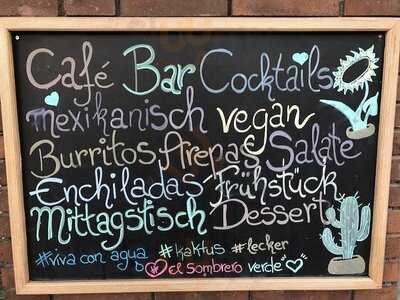 Café Bar Cocktails
mexikanisch vegan
Burritos Arepas Salate
Enchiladas Frühstück
Mittagstisch Dessert
#viva con agua #kaktus #lecker
el sombrero verde